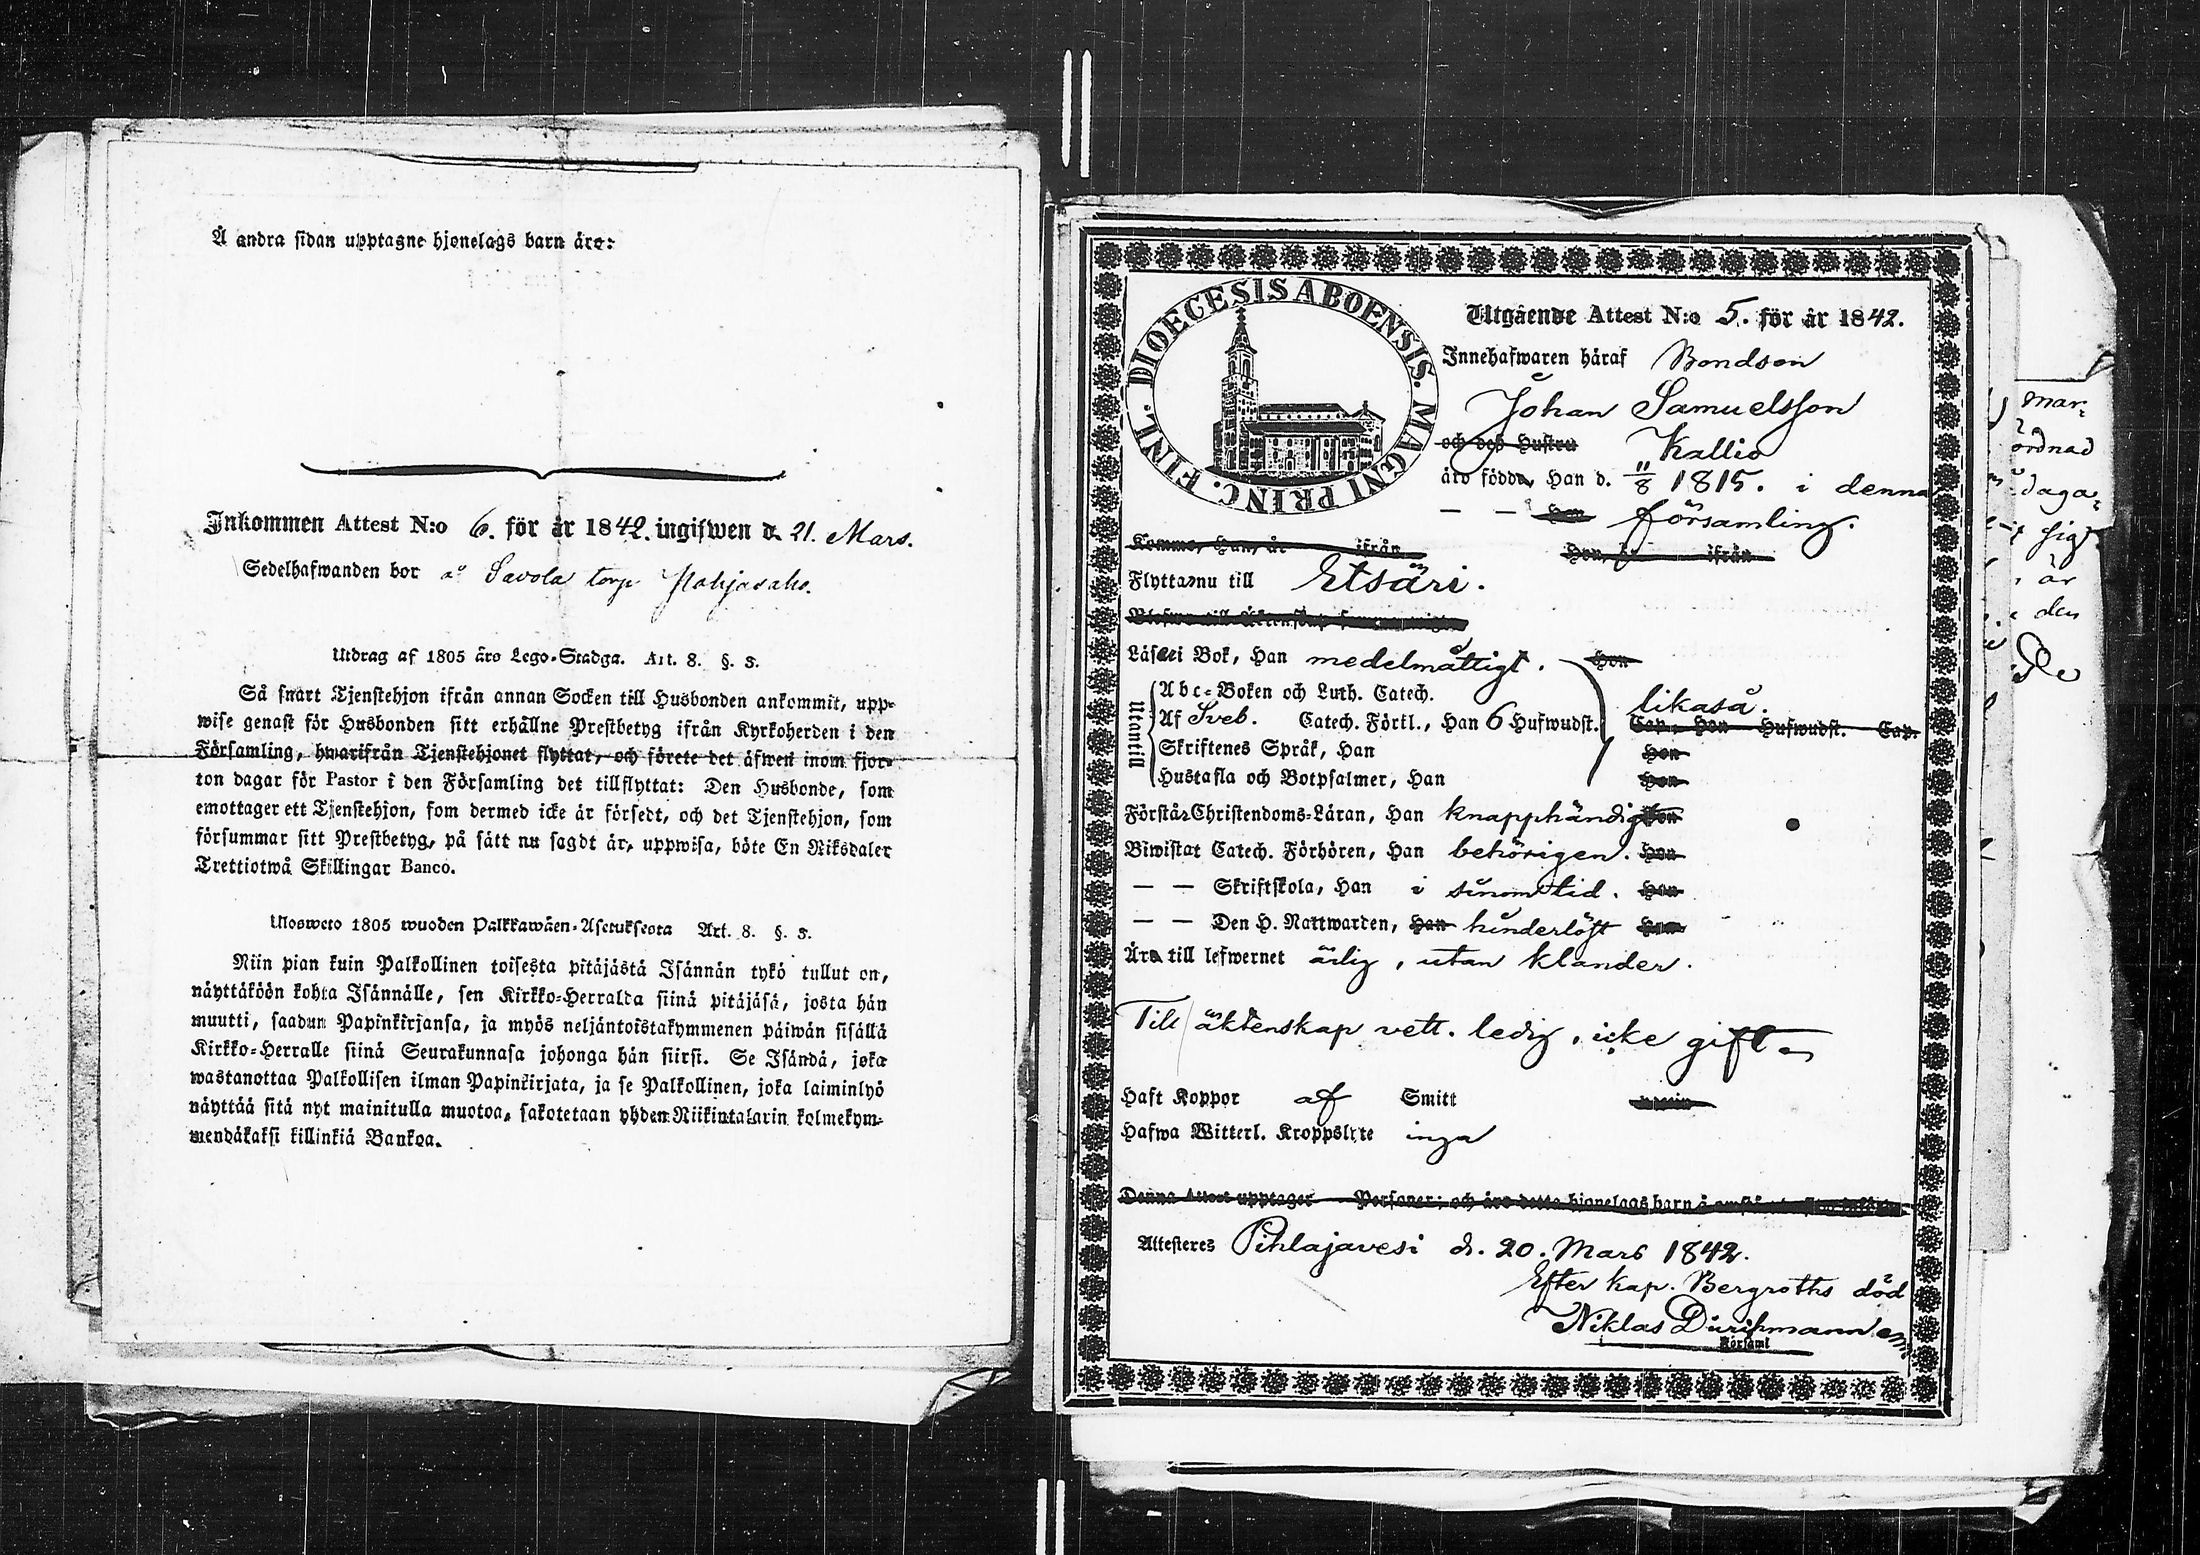 Å andra sidan upptagne hjonelags barn äro:
Inkommen Attest N:o 6. för år 1842. ingifwen d. 21. Mars.
Sedelhafwanden bor å Savola torp Pohjasaho.
Utdrag af 1805 års Lego-Stadga. Art. 8. §. 3.
Så snart Tjenstehjon ifrån annan Socken till Husbonden ankommit, upp-
wise genast för Husbonden sitt erhållne Prestbetyg ifrån Kyrkoherden i den
Församling, hwarifrån Tjenstehjonet flyttat, och förete det äfwen inom fjor-
ton dagar för Pastor i den Församling det tillflyttat: Den Husbonde, som
emottager ett Tjenstehjon, som dermed icke är försedt, och det Tjenstehjon, som
försummar sitt Prestbetyg, på sätt nu sagdt är, uppwisa, böte En Riksdaler
Trettiotwå Skillingar Banco.
Ulosweto 1805 wuoden Palkkawäen-Asetuksesta Art. 8. §. 3.
Niin pian kuin Palkollinen toisesta pitäjästä Isännän tykö tullut on,
näyttäköön kohta Isännälle, sen Kirkko-Herralda siinä pitäjäsä, josta hän
muutti, saadun Papinkirjansa, ja myös neljäntoistakymmenen päiwän sisällä
Kirkko-Herralle siinä Seurakunnasa johonga hän siirsi. Se Isändä, joka
wastanottaa Palkollisen ilman Papinkirjata, ja se Palkollinen, joka laiminlyö
näyttää sitä nyt mainitulla muotoa, sakotetaan yhden Riikintalarin kolmekym-
mendäkaksi killinkiä Bankoa.
DIOECESIS ABOENSIS. MAGNI PRINC. FINL.
Utgående Attest N:o 5. för år 1842.
Innehafwaren häraf Bondson
Johan Samuelsson
och deß Hustru Kallio
äro födde, Han d. 11/8 1815. i denna
— — Hon församling.
Komme, Han, år ifrån Hon, år ifrån
Flytta nu till Etsäri.
Läsa i Bok, Han medelmåttigt. Hon
Utantill
Abc-Boken och Luth. Catech. likaså.
Af Sveb. Catech. Förkl., Han 6 Hufwudst. Cap., Hon Hufwudst. Cap.
Skriftenes Språk, Han Hon
Hustafla och Botpsalmer, Han Hon
Förstår Christendoms-Läran, Han knapphändigt Hon
Biwistat Catech. Förhören, Han behörigen. Hon
— — Skriftskola, Han i sinom tid. Hon
— — Den H. Nattwarden, Han hinderlöst Hon
Äro till lefwernet ärlig, utan klander.
Till äktenskap vett. ledig, icke gift
Haft Koppor af Smitt
Hafwa Witterl. Kroppslyte inga
Denna Attest upptager Personer; och äro detta hjonelags barn å
Attesteres Pihlajavesi d. 20. Mars 1842.
Efter kap. Bergroths död
Niklas Dürchmann
Församl
mar-
ordnad
daga-
sig
är
den